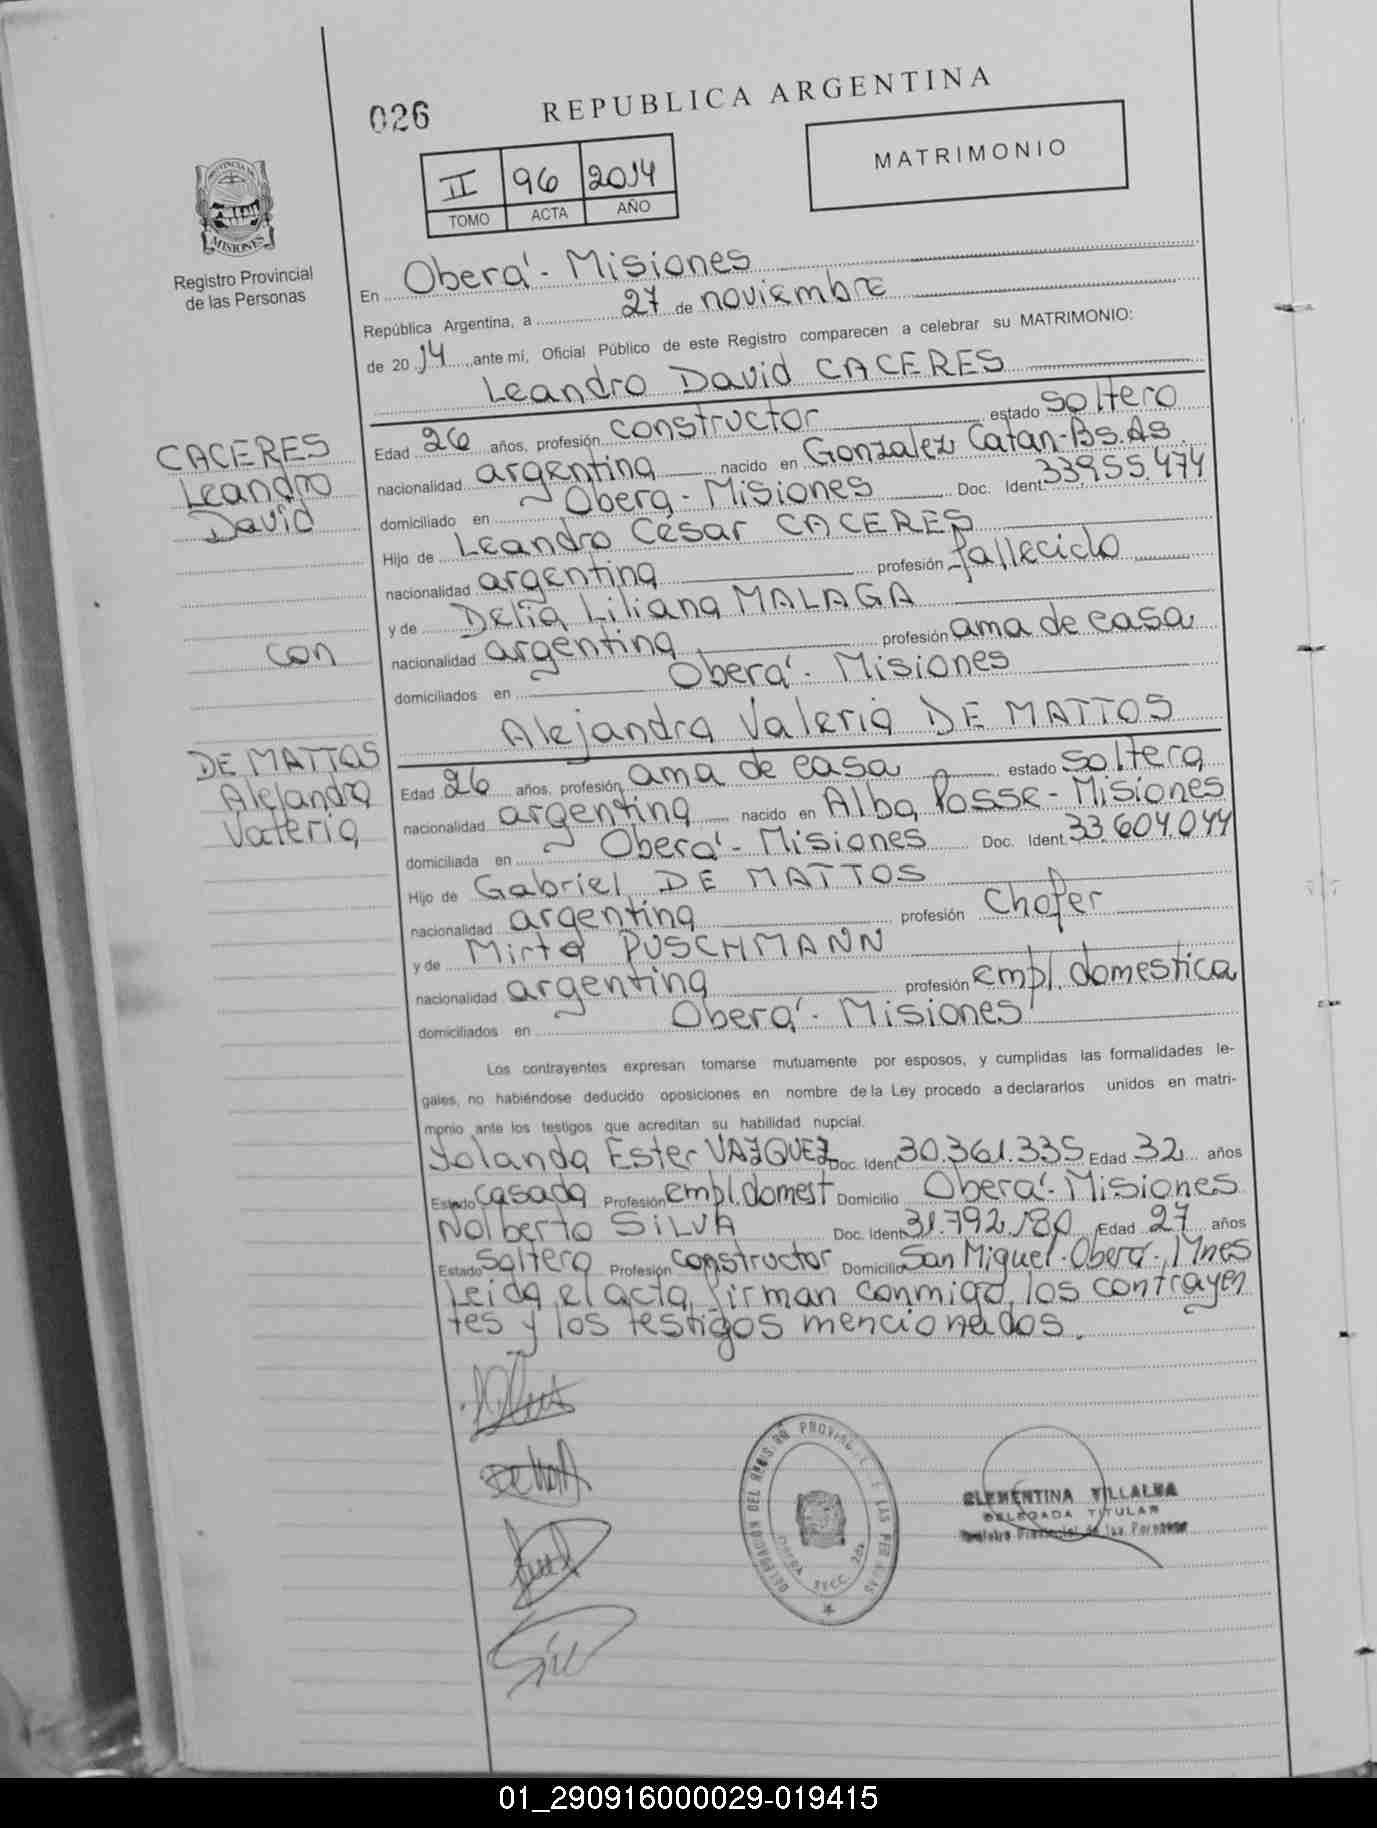 026
REPUBLICA ARGENTINA
II 96 2014
TOMO ACTA AÑO
MATRIMONIO
PROVINCIA DE
MISIONES
Registro Provincial
de las Personas
En Oberá - Misiones
República Argentina, a 27 de noviembre
de 2014 ante mí, Oficial Público de este Registro comparecen a celebrar su MATRIMONIO:
Leandro David CACERES
CACERES
Leandro
David
con
DE MATTOS
Alejandra
Valeria
Edad 26 años, profesión constructor estado soltero
nacionalidad argentina nacido en Gonzalez Catan-Bs.As.
domiciliado en Obera - Misiones Doc. Ident 33.955.474
Hijo de Leandro César CACERES
nacionalidad argentina profesión fallecido
y de Delia Liliana MALAGA
nacionalidad argentina profesión ama de casa
domiciliados en Oberá - Misiones
Alejandra Valeria DE MATTOS
Edad 26 años, profesión ama de casa estado soltera
nacionalidad argentina nacido en Alba Posse - Misiones
domiciliada en Oberá - Misiones Doc. Ident 33.604.044
Hijo de Gabriel DE MATTOS
nacionalidad argentina profesión Chofer
y de Mirta PUSCHMANN
nacionalidad argentina profesión empl. domestica
domiciliados en Oberá - Misiones
Los contrayentes expresan tomarse mutuamente por esposos, y cumplidas las formalidades le-
gales, no habiéndose deducido oposiciones en nombre de la Ley procedo a declararlos unidos en matri-
monio ante los testigos que acreditan su habilidad nupcial.
Yolanda Ester VAZQUEZ Doc. Ident 30.361.335 Edad 32 años
Estado casada Profesión empl. domest Domicilio Oberá - Misiones
Nolberto SILVA Doc. Ident 31.792.180 Edad 27 años
Estado soltero Profesión constructor Domicilio San Miguel - Oberá - Mnes
Leida el acta, firman conmigo, los contrayen
tes y los testigos mencionados.
DELEGACION DEL REGISTRO PROVINCIAL DE LAS PERSONAS
OBERA SECC.
CLEMENTINA VILLALBA
DELEGADA TITULAR
Registro Provincial de las Personas
01_290916000029-019415